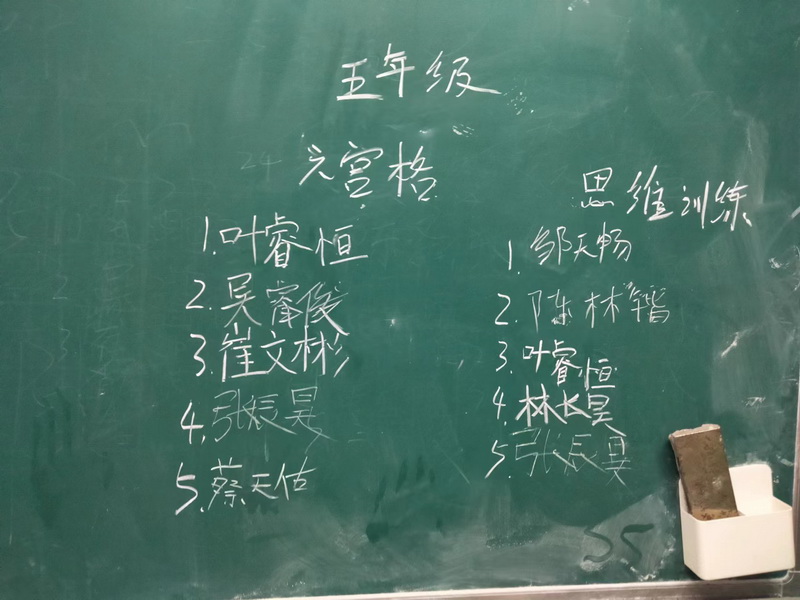 五年级
六宫格
1.叶睿恒
2.吴睿俊
3.崔文彬
4.张辰昊
5.蔡天佑
思维训练
1.邹天畅
2.陈林
3.叶睿恒
4.林长昊
5.张辰昊